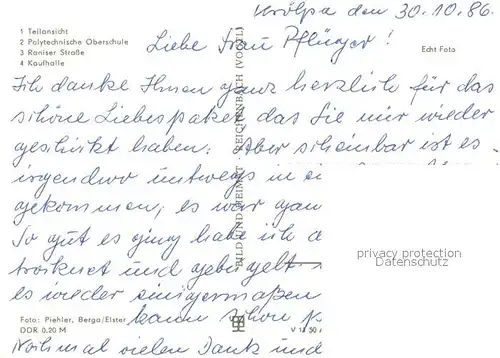 Krölpa den 30.10.86.
1 Teilansicht
2 Polytechnische Oberschule
3 Raniser Straße
4 Kaulhalle
Liebe Frau Pflüger!
Echt Foto
Ich danke Ihnen ganz herzlich für das
schöne Liebespaket das Sie mir wieder
geschikt haben. Aber scheinbar ist es
irgendwo untwegs in
gekommen, es war gan
So gut es ging habe ich
troknet und gebügelt.
es wieder einigermaßen
kann schon
Nochmal vielen Dank und
BILD UND HEIMAT REICHENBACH (VOGTL)
privacy protection
Datenschutz
Foto: Piehler, Berga/Elster
DDR 0,20 M
V 11 50